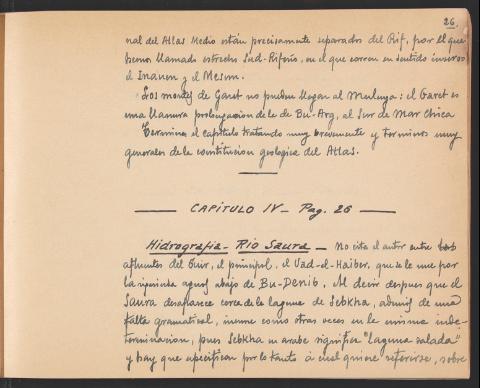 26.
nal del Atlas Medio están precisamente separados del Rif, por el que
hemos llamado estrecho Sud-Rifeño, en el que corren en sentido inverso
el Inauen y el Mesun.
Los montes de Garet no pueden llegar al Muluya: el Garet es
una llanura prolongación de la de Bu-Arg, al Sur de Mar Chica
Termina el capítulo tratando muy brevemente y terminos muy
generales de la constitución geologica del Atlas.
— CAPÍTULO IV — Pag. 26 —
Hidrografia — Rio Saura — No cita el autor entre los
afluentes del Guir, el principal, el Uad-el-Haiber, que se le une por
la izquierda aguas abajo de Bu-Denib. Al decir despues que el
Saura desaparece cerca de la laguna de Sebkha, además de una
falta gramatical, incurre como otras veces en la misma inde-
terminacion, pues Sebkha en arabe significa "laguna salada"
y hay que especificar por lo tanto á cual quiere referirse, sobre